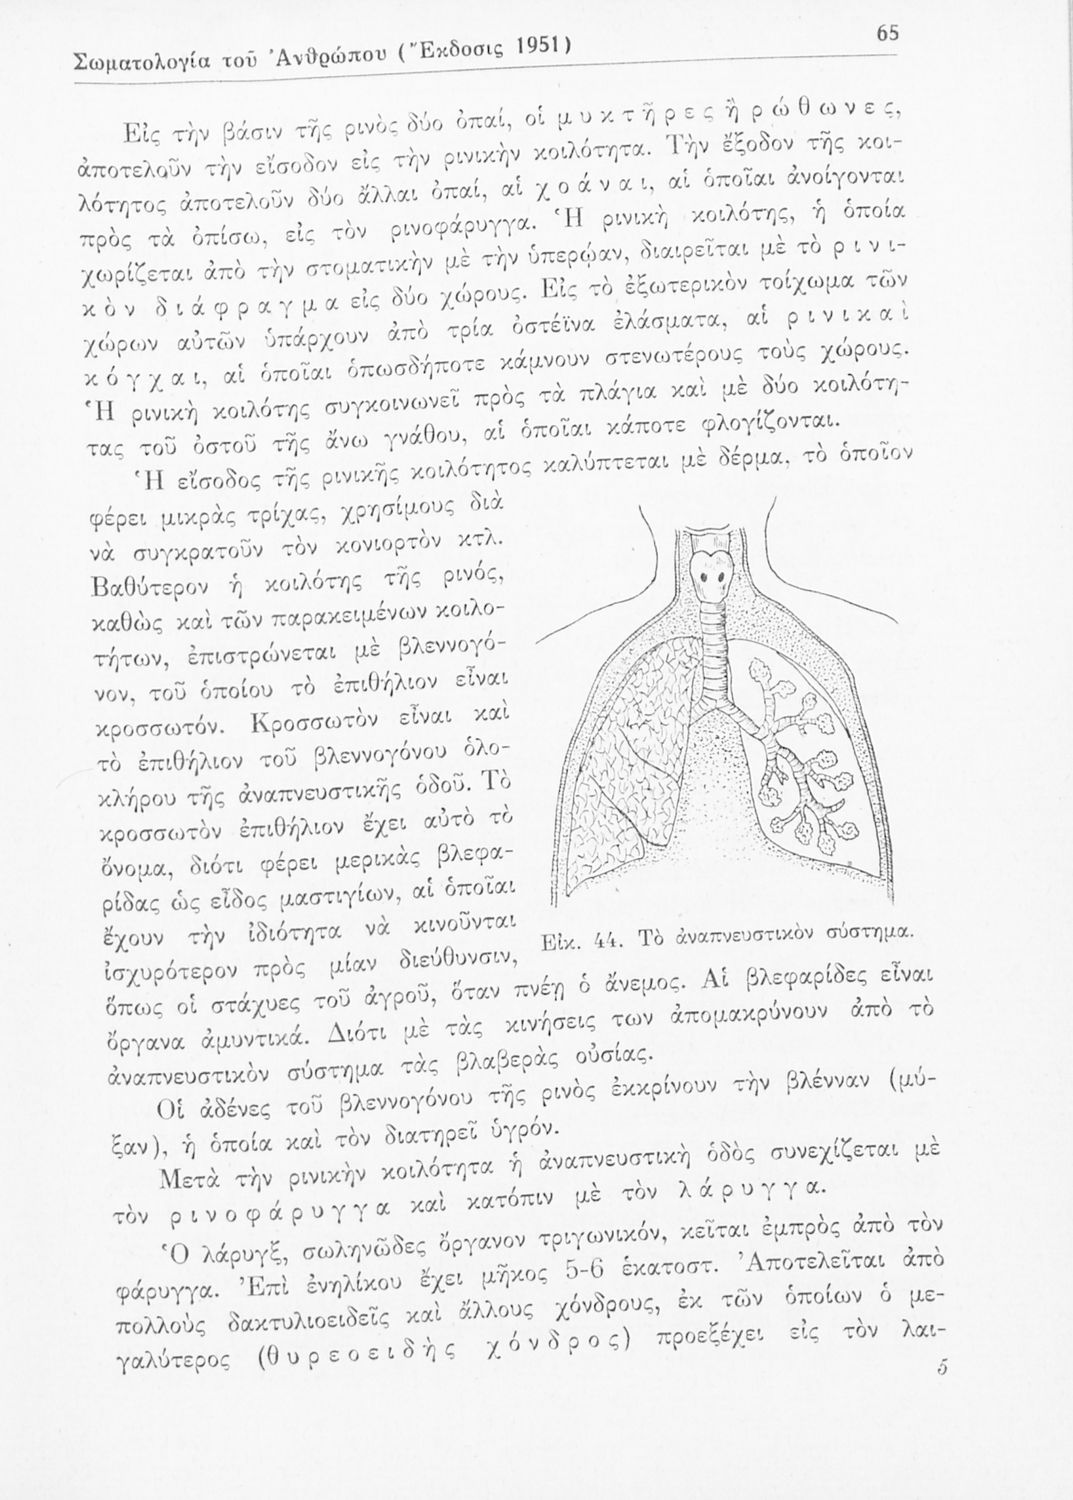 Σωματολογία τοῦ Ἀνθρώπου (Ἔκδοσις 1951)
65
Εἰς τὴν βάσιν τῆς ρινὸς δύο ὀπαί, οἱ μυκτῆρες ἢ ρώθωνες,
ἀποτελοῦν τὴν εἴσοδον εἰς τὴν ρινικὴν κοιλότητα. Τὴν ἔξοδον τῆς κοι-
λότητος ἀποτελοῦν δύο ἄλλαι ὀπαί, αἱ χοάναι, αἱ ὁποῖαι ἀνοίγονται
πρὸς τὰ ὀπίσω, εἰς τὸν ρινοφάρυγγα. Ἡ ρινικὴ κοιλότης, ἡ ὁποία
χωρίζεται ἀπὸ τὴν στοματικὴν μὲ τὴν ὑπερῴαν, διαιρεῖται μὲ τὸ ρινι-
κὸν διάφραγμα εἰς δύο χώρους. Εἰς τὸ ἐξωτερικὸν τοίχωμα τῶν
χώρων αὐτῶν ὑπάρχουν ἀπὸ τρία ὀστέϊνα ἐλάσματα, αἱ ρινικαὶ
κόγχαι, αἱ ὁποῖαι ὁπωσδήποτε κάμνουν στενωτέρους τοὺς χώρους.
Ἡ ρινικὴ κοιλότης συγκοινωνεῖ πρὸς τὰ πλάγια καὶ μὲ δύο κοιλότη-
τας τοῦ ὀστοῦ τῆς ἄνω γνάθου, αἱ ὁποῖαι κάποτε φλογίζονται.
Ἡ εἴσοδος τῆς ρινικῆς κοιλότητος καλύπτεται μὲ δέρμα, τὸ ὁποῖον
φέρει μικρὰς τρίχας, χρησίμους διὰ
νὰ συγκρατοῦν τὸν κονιορτὸν κτλ.
Βαθύτερον ἡ κοιλότης τῆς ρινός,
καθὼς καὶ τῶν παρακειμένων κοιλο-
τήτων, ἐπιστρώνεται μὲ βλεννογό-
νον, τοῦ ὁποίου τὸ ἐπιθήλιον εἶναι
κροσσωτόν. Κροσσωτὸν εἶναι καὶ
τὸ ἐπιθήλιον τοῦ βλεννογόνου ὁλο-
κλήρου τῆς ἀναπνευστικῆς ὁδοῦ. Τὸ
κροσσωτὸν ἐπιθήλιον ἔχει αὐτὸ τὸ
ὄνομα, διότι φέρει μερικὰς βλεφα-
ρίδας ὡς εἶδος μαστιγίων, αἱ ὁποῖαι
ἔχουν τὴν ἰδιότητα νὰ κινοῦνται
ἰσχυρότερον πρὸς μίαν διεύθυνσιν,
Εἰκ. 44. Τὸ ἀναπνευστικὸν σύστημα.
ὅπως οἱ στάχυες τοῦ ἀγροῦ, ὅταν πνέῃ ὁ ἄνεμος. Αἱ βλεφαρίδες εἶναι
ὄργανα ἀμυντικά. Διότι μὲ τὰς κινήσεις των ἀπομακρύνουν ἀπὸ τὸ
ἀναπνευστικὸν σύστημα τὰς βλαβερὰς οὐσίας.
Οἱ ἀδένες τοῦ βλεννογόνου τῆς ρινὸς ἐκκρίνουν τὴν βλένναν (μύ-
ξαν), ἡ ὁποία καὶ τὸν διατηρεῖ ὑγρόν.
Μετὰ τὴν ρινικὴν κοιλότητα ἡ ἀναπνευστικὴ ὁδὸς συνεχίζεται μὲ
τὸν ρινοφάρυγγα καὶ κατόπιν μὲ τὸν λάρυγγα.
Ὁ λάρυγξ, σωληνῶδες ὄργανον τριγωνικόν, κεῖται ἐμπρὸς ἀπὸ τὸν
φάρυγγα. Ἐπὶ ἐνηλίκου ἔχει μῆκος 5-6 ἑκατοστ. Ἀποτελεῖται ἀπὸ
πολλοὺς δακτυλιοειδεῖς καὶ ἄλλους χόνδρους, ἐκ τῶν ὁποίων ὁ με-
γαλύτερος (θυρεοειδὴς χόνδρος) προεξέχει εἰς τὸν λαι-
5